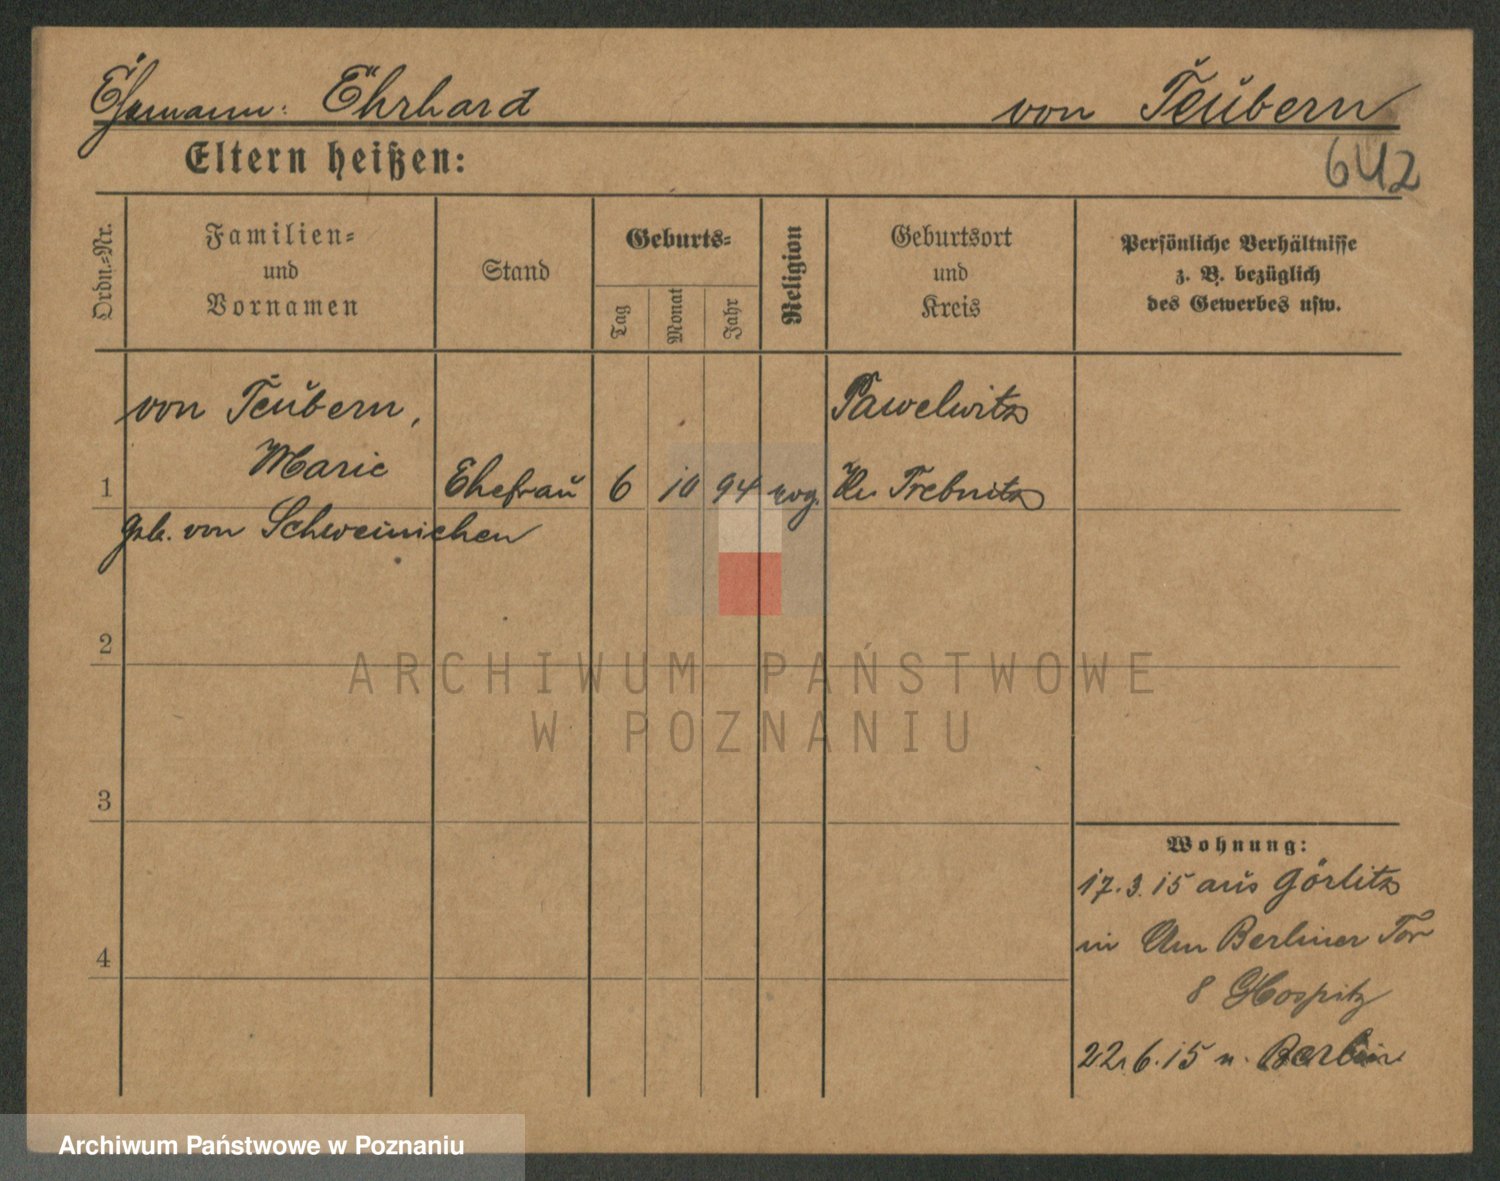 Ehemann: Ehrhard von Teubern
Eltern heißen:
642
Ordn.-Nr.
Familien-
und
Vornamen
Stand
Geburts-
Tag
Monat
Jahr
Religion
Geburtsort
und
Kreis
Persönliche Verhältnisse
z. B. bezüglich
des Gewerbes usw.
von Teubern,
Marie
1 Ehefrau 6 10 94 evg.
Pawelwitz
Kr. Trebnitz
geb. von Schweinichen
2
3
4
Wohnung:
17.3.15 aus Görlitz
in Am Berliner Tor
8 Hospitz
22.6.15 n. Berlin
ARCHIWUM PAŃSTWOWE
W POZNANIU
Archiwum Państwowe w Poznaniu